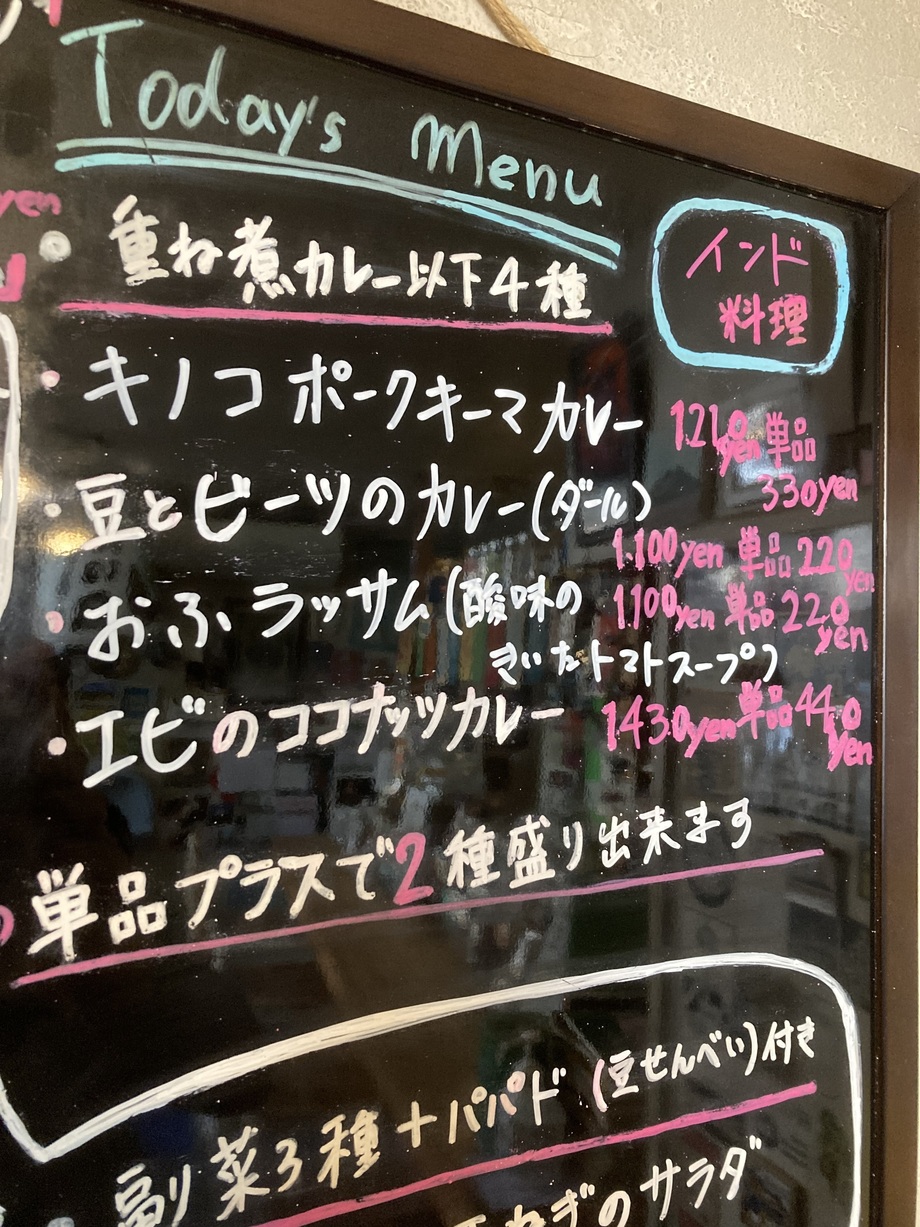 Today's Menu
yen
重ね煮カレー以下4種
インド
料理
・キノコポークキーマカレー 1210yen 単品
330yen
・豆とビーツのカレー(ダール)
1100yen 単品220yen
・おふラッサム(酸味の 1100yen 単品220yen
きいたトマトスープ)
・エビのココナッツカレー 1430yen 単品440yen
単品プラスで2種盛り出来ます
副菜3種+パパド(豆せんべい)付き
ねぎのサラダ